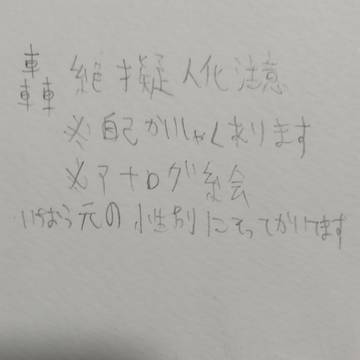 轟絶 才疑人化注意
※自己かいしゃくあります
※アナログ絵
いちおう元の性別にそってかいてます